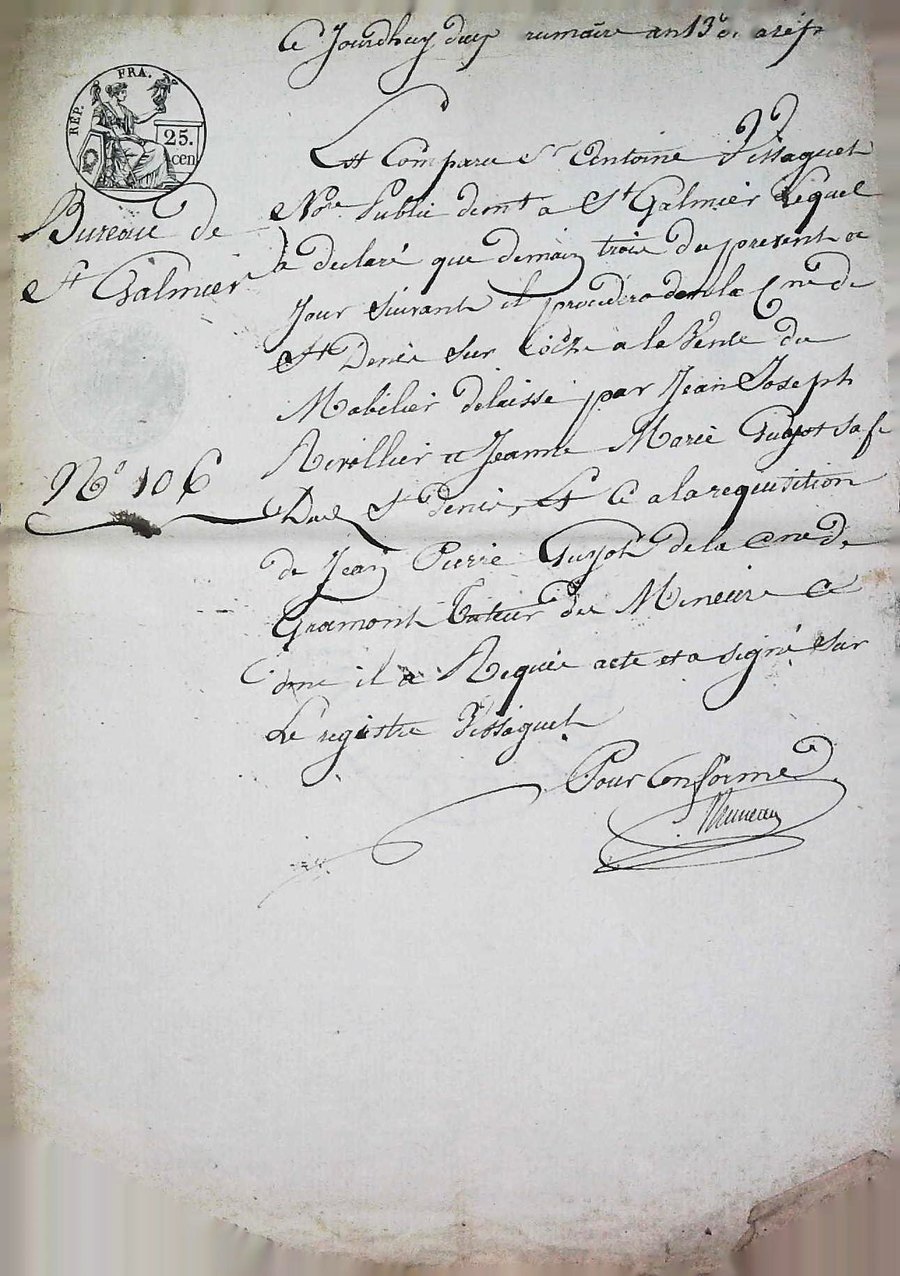 Ce Jourdhuy deux rumaire an 13e.
RÉP. FRA.
25.
cen
Est Comparu Sr Antoine Pissaguet
Bureau de
St Galmier
Nore Public demt a St Galmier Lequel
a declaré que demain trois du present et
Jour Suivant il procedera dans la Cne de
St Denis Sur Coize a la Vente du
Mobilier delaissé par Jean Joseph
Rivollier et Jeanne Marie Guyot sa fe
No 106
Dud St Denis, Et Ce a la requisition
de Jean Pierre Guyot de la Cne de
Gramont Tuteur des Mineurs Ce
dont il a Requis acte et a signé Sur
Le registre Pissaguet
Pour Conforme